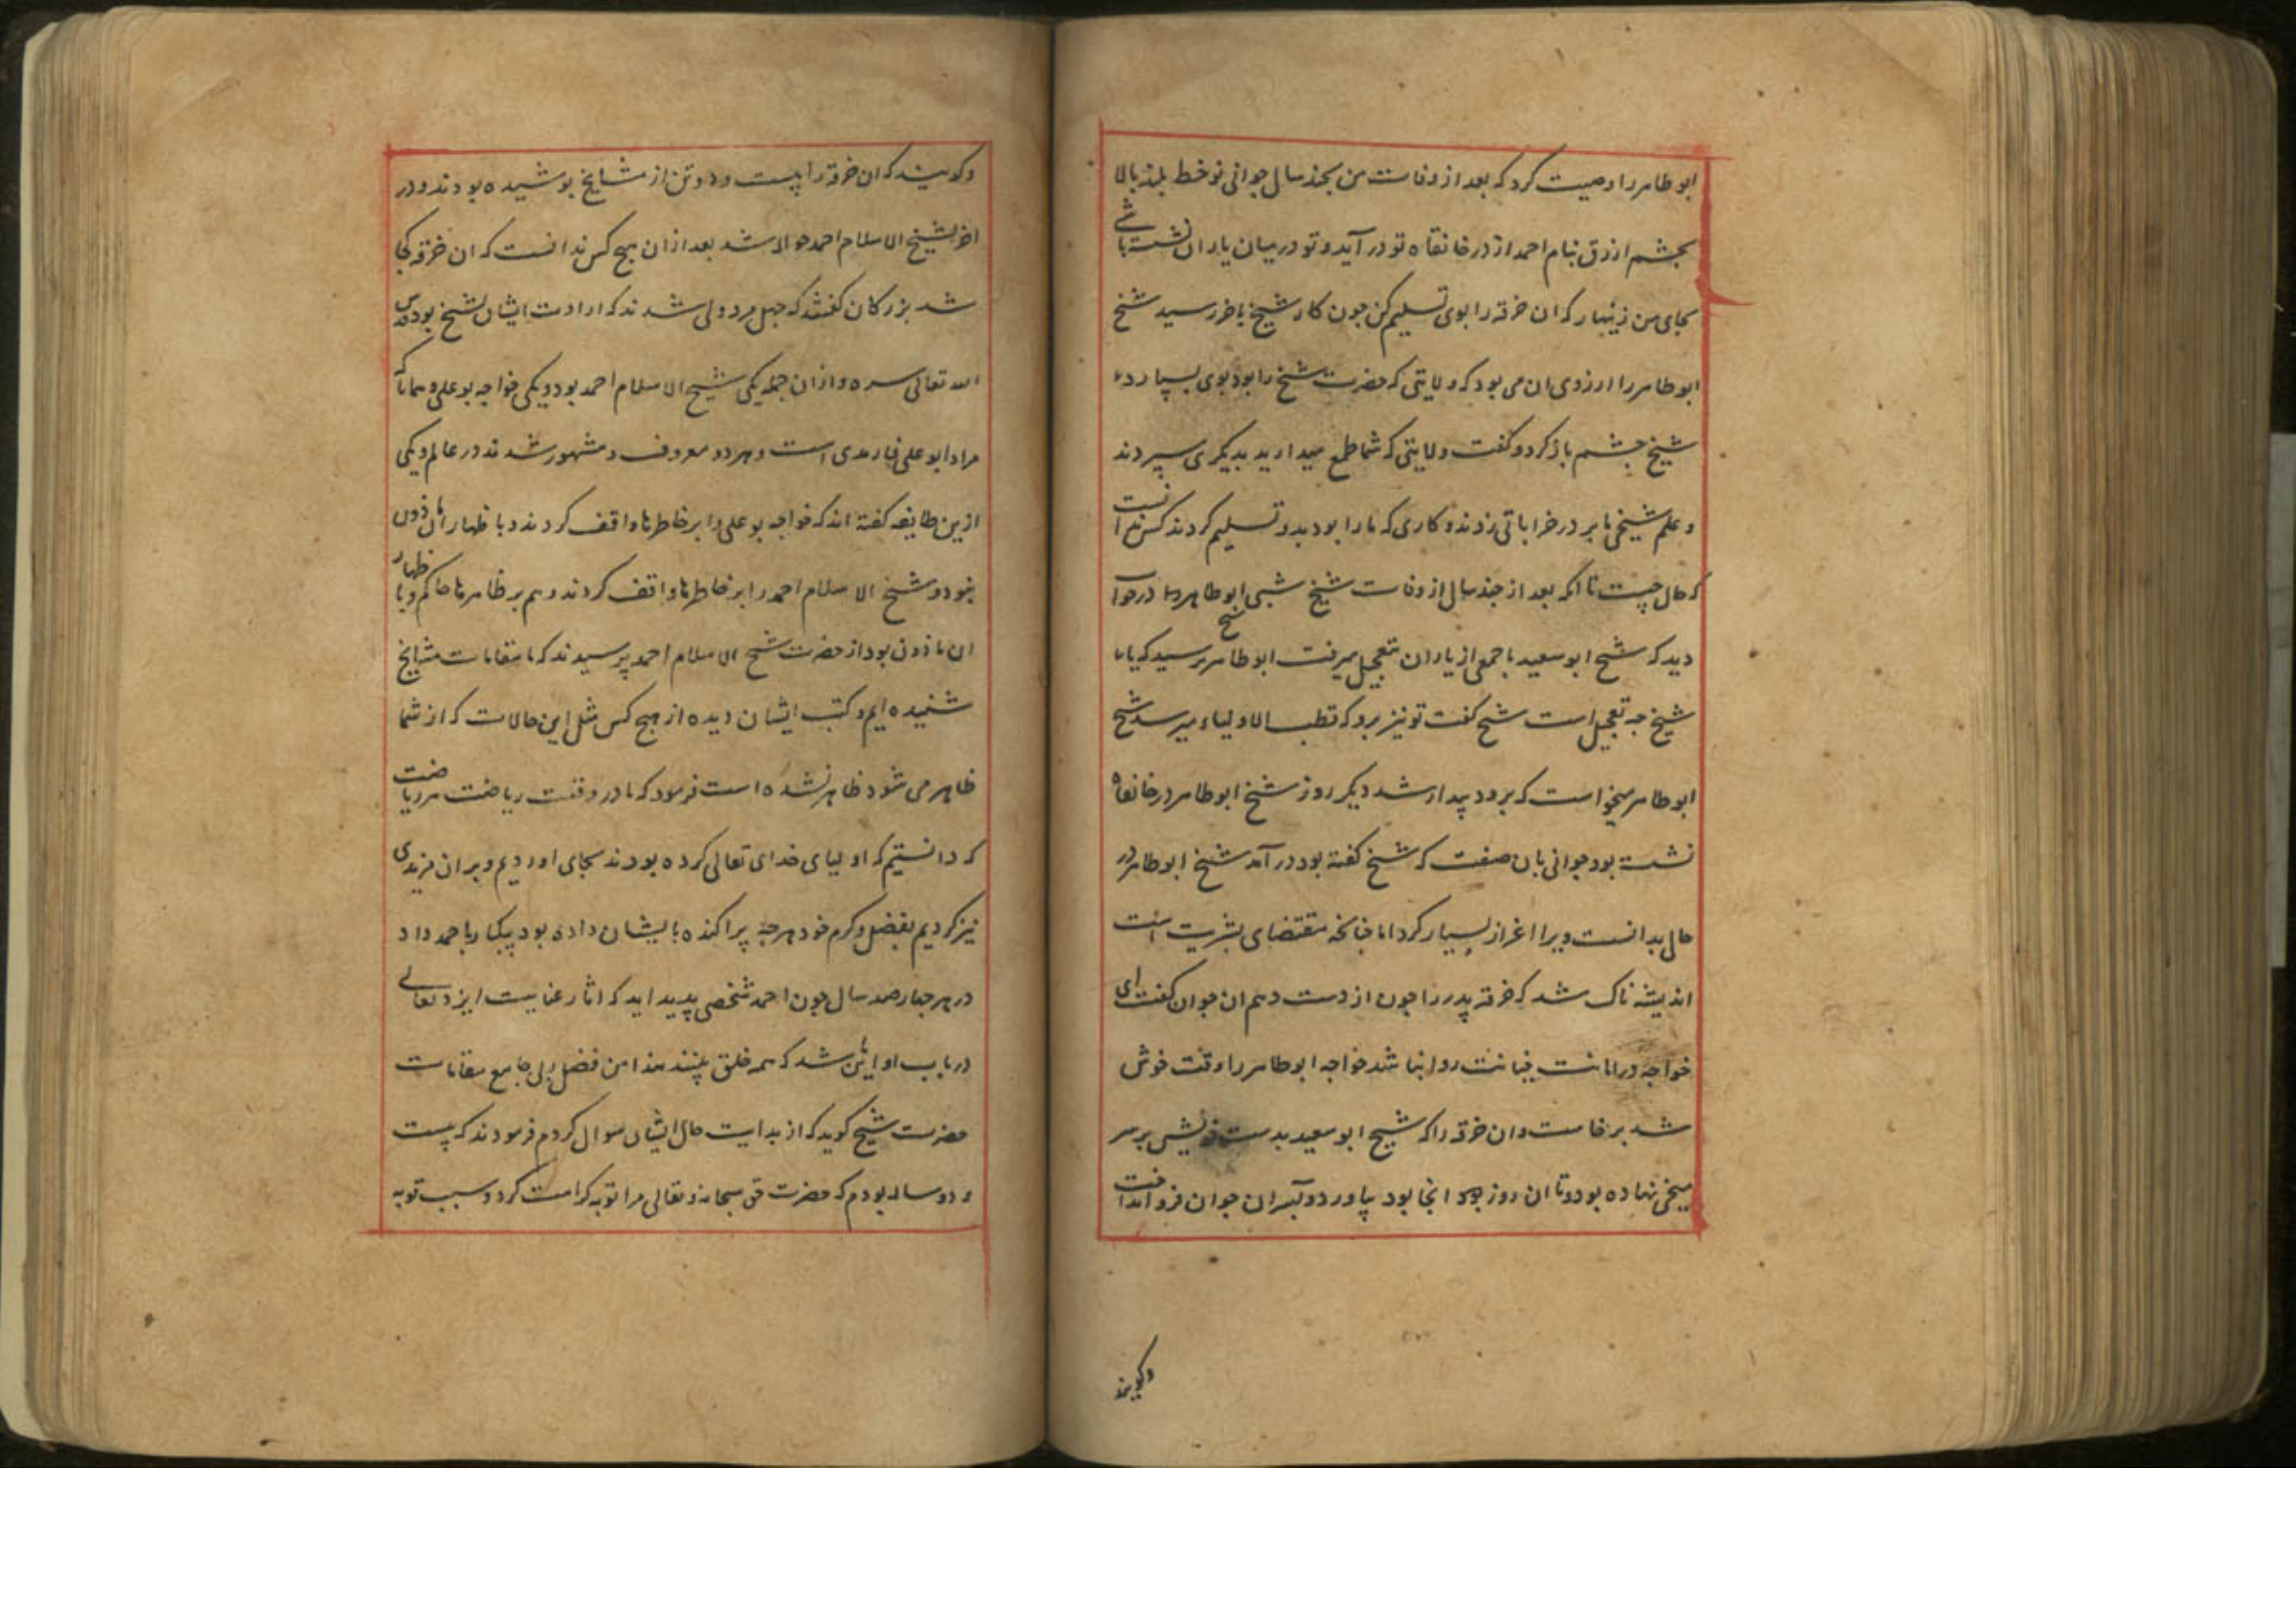 ابو طاهر را وصیت کرد که بعد از وفات من بچند سال جوانی نو خط بلند بالا
بچشم ازرق بنام احمد از در خانقاه تو در آید و تو در میان یاران نشسته باشی
بجای من زینهار که ان خرقه را بوی تسلیم کن چون کار شیخ باخر رسید شیخ
ابو طاهر را ارزوی ان می بود که ولایتی که حضرت شیخ را بود بوی بسپارد
شیخ چشم باز کرد و کفت ولایتی که شما طمع میدارید بدیکری سپردند
و علم شیخی ما بر در خراباتی زدند و کاری که ما را بود بدو تسلیم کردند کس ندانست
که حال چیست تا انکه بعد از چند سال از وفات شیخ شبی ابو طاهر در خواب
دید که شیخ ابو سعید با جمعی از یاران بتعجیل میرفت ابو طاهر پرسید که یا شیخ
شیخ چه تعجیل است شیخ کفت تو نیز برو که قطب الاولیاء میرسد شیخ
ابو طاهر میخواست که برود بیدار شد دیکر روز شیخ ابو طاهر در خانقاه
نشسته بود جوانی بان صفت که شیخ کفته بود در آمد شیخ ابو طاهر در
حال بدانست ویرا اعزاز بسیار کرد اما چنانکه مقتضای بشریت است
اندیشه ناک شد که خرقه پدر را چون از دست دهم ان جوان کفت ای
خواجه در امانت خیانت روا نباشد خواجه ابو طاهر را وقت خوش
شد برخاست و ان خرقه را که شیخ ابو سعید بدست خویش بر سر
میخی نهاده بود و تا ان روز انجا بود بیاورد و بسر ان جوان فرو انداخت
وکویند
وکویند که ان خرقه را بیست و دو تن از مشایخ پوشیده بودند و در
اخر بشیخ الاسلام احمد حواله شد بعد از ان هیچ کس ندانست که ان خرقه کجا
شد بزرکان کفتند که چهل مرد ولی شدند که ارادت ایشان بشیخ بود قدس
الله تعالی سره و از ان جمله یکی شیخ الاسلام احمد بود و یکی خواجه بو علی همانا که
مراد ابو علی فارمدی است و هر دو معروف و مشهور شدند در عالم و یکی
ازین طایفه کفته اند که خواجه بو علی را بر خاطرها واقف کردند و با ظهار آن ماذون
نبود و شیخ الاسلام احمد را بر خاطرها واقف کردند و هم بر ظاهرها حاکم و با ظهار
ان ماذون بود از حضرت شیخ الاسلام احمد پرسیدند که ما مقامات مشایخ
شنیده ایم و کتب ایشان دیده از هیچ کس مثل این حالات که از شما
ظاهر می شود ظاهر نشده است فرمود که ما در وقت ریاضت هر ریاضت
که دانستیم که اولیای خدای تعالی کرده بودند بجای اوردیم و بر ان مزیدی
نیز کردیم بفضل و کرم خود هرچه پراکنده بایشان داده بود بیکبار باحمد داد
در هر چهارصد سال چون احمد شخصی پدید اید که اثار عنایت ایزد تعالی
در باب او این شد که همه خلق بینند هذا من فضل ربی جامع مقامات
حضرت شیخ کوید که از بدایت حال ایشان سوال کردم فرمودند که بیست
و دو ساله بودم که حضرت حق سبحانه و تعالی مرا توبه کرامت کرد و سبب توبه